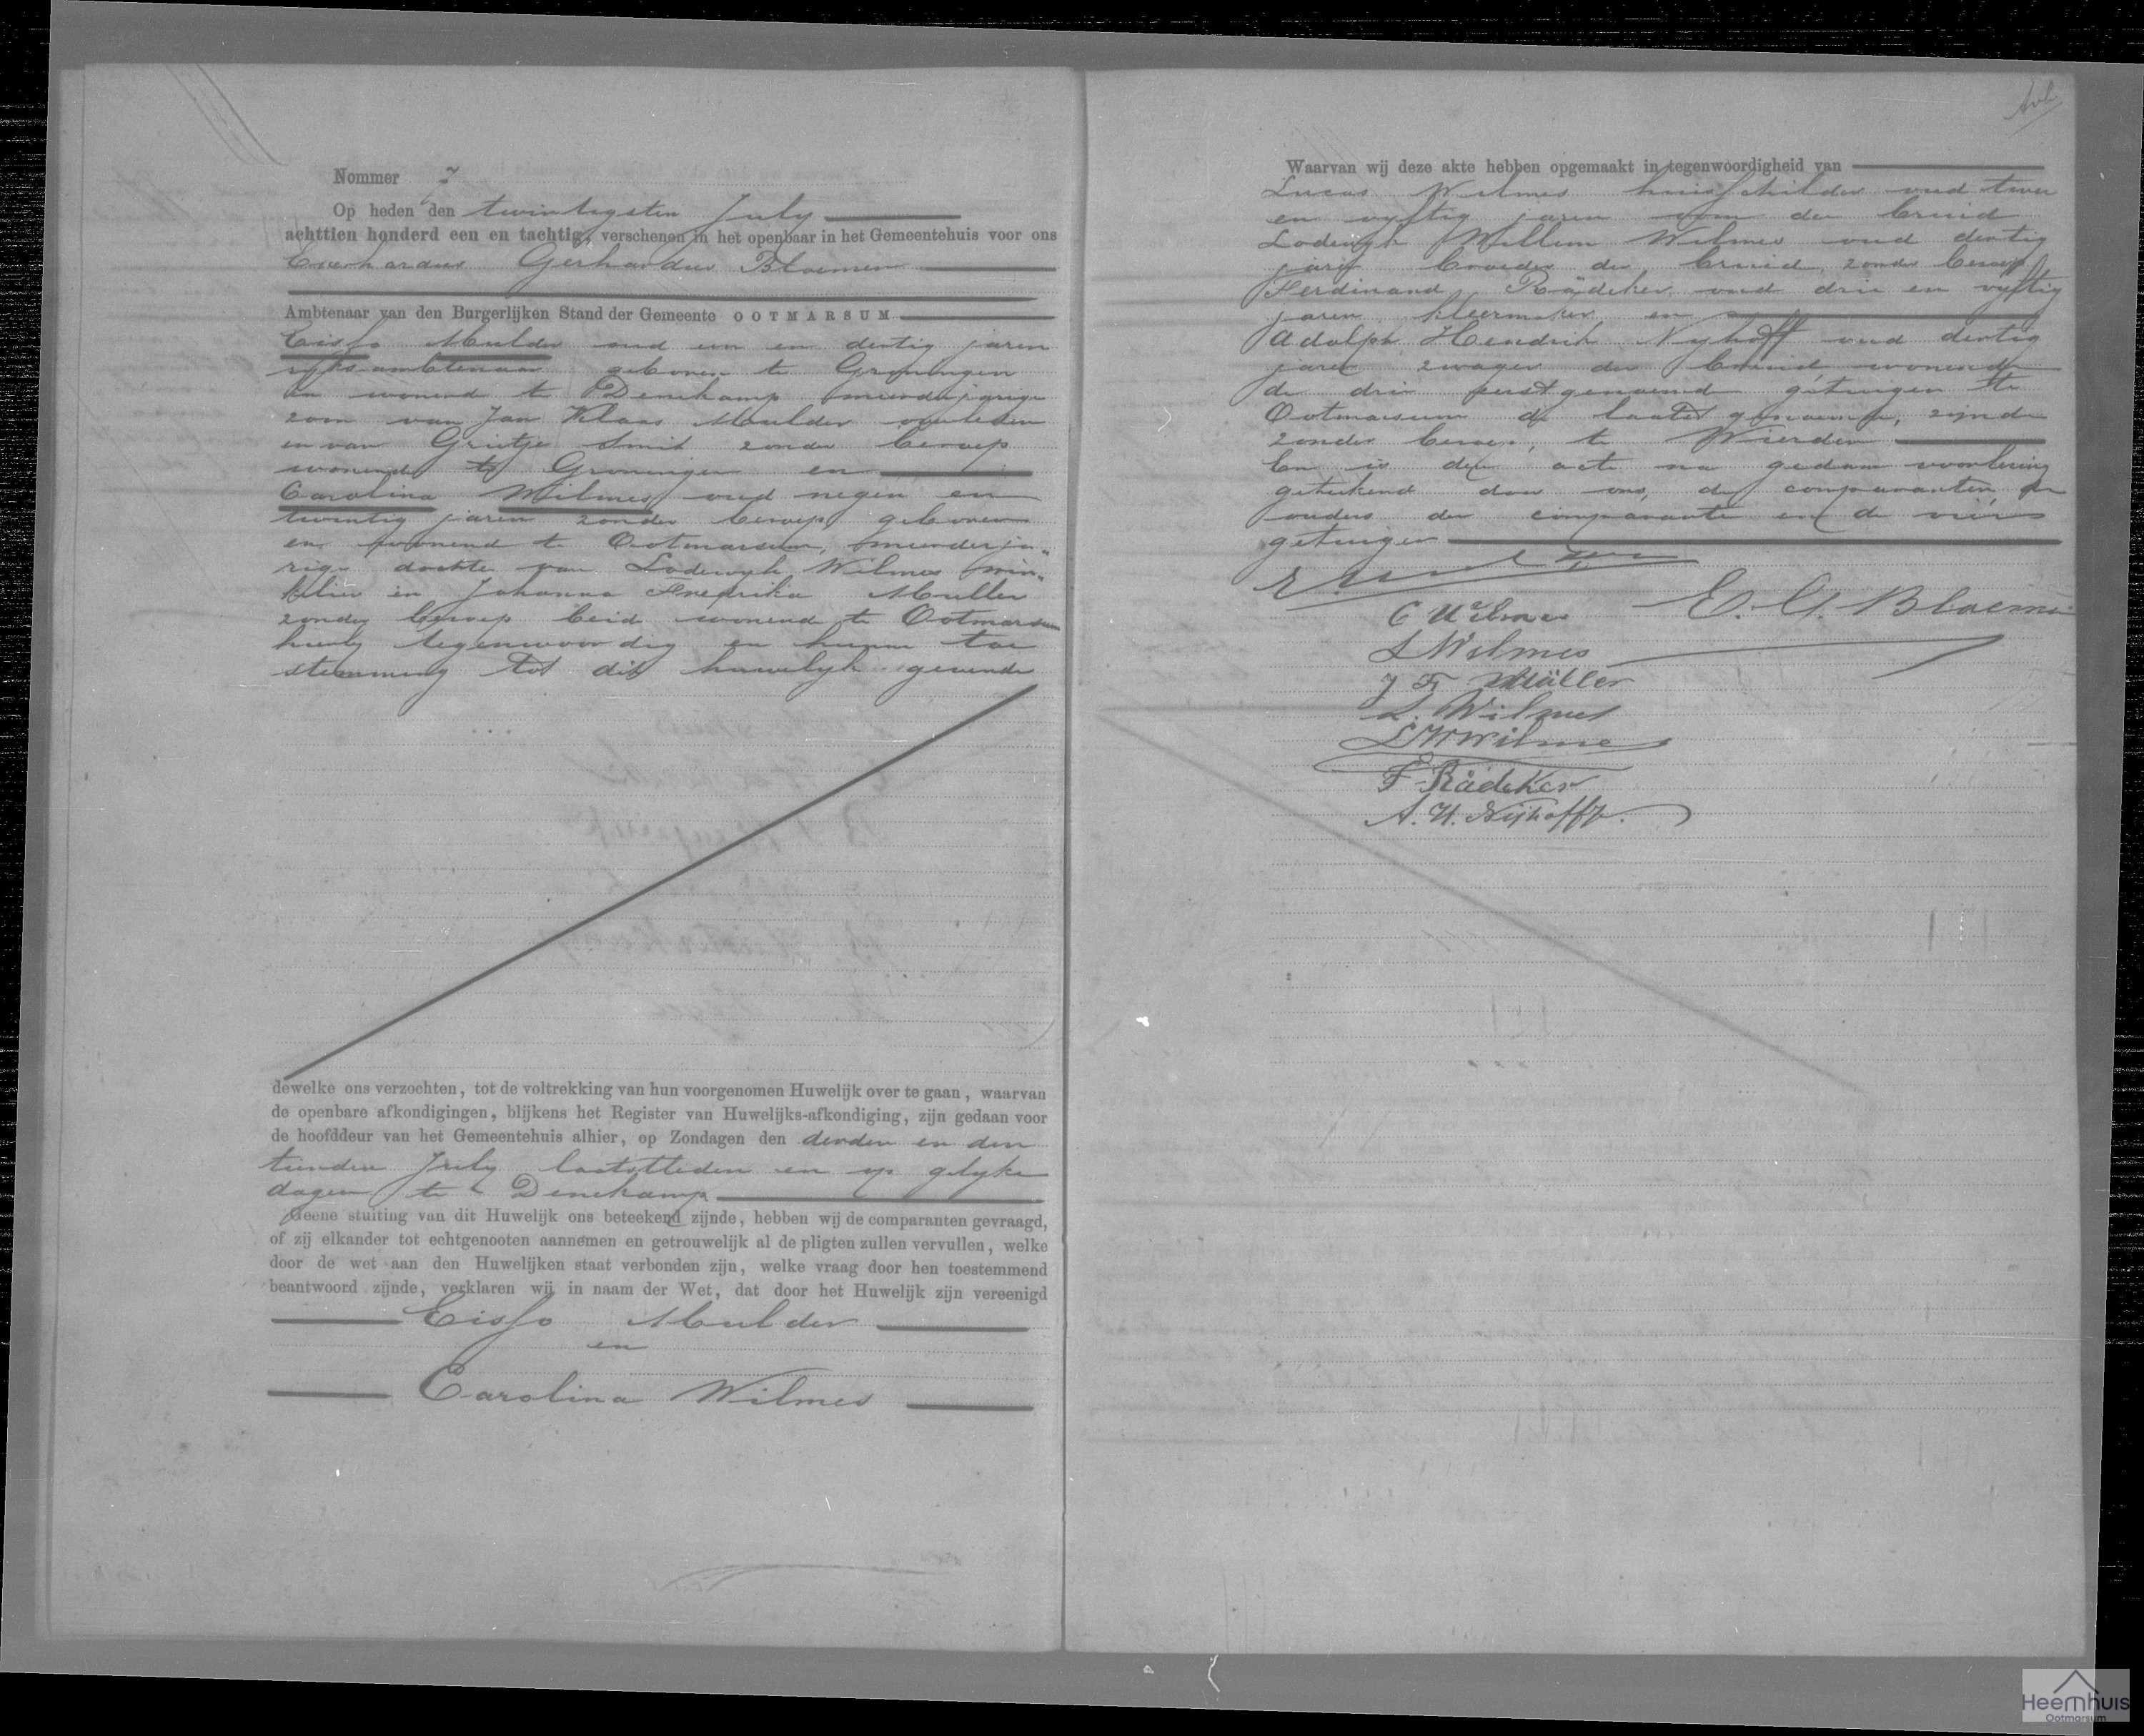 Nommer 7
Op heden den twintigsten July
achttien honderd een en tachtig, verschenen in het openbaar in het Gemeentehuis voor ons
Everhardus Gerhardus Bloemen
Ambtenaar van den Burgerlijken Stand der Gemeente OOTMARSUM
Eisso Mulder oud een en dertig jaren
ryks ambtenaar geboren te Groningen
en wonend te Denekamp meerderjarige
zoon van Jan Klaas Mulder overleden
en van Grietje Smit zonder beroep
wonende te Groningen en
Carolina Wilmes oud negen en
twintig jaren zonder beroep geboren
en wonend te Ootmarsum, meerderja„
rige dochter van Lodewyk Wilmes win„
kelier en Johanna Frederika Muller
zonder beroep beide wonende te Ootmarsum
hierby tegenwoordig en hunne toe
stemming tot dit huwelyk gevende
dewelke ons verzochten, tot de voltrekking van hun voorgenomen Huwelijk over te gaan, waarvan
de openbare afkondigingen, blijkens het Register van Huwelijks-afkondiging, zijn gedaan voor
de hoofddeur van het Gemeentehuis alhier, op Zondagen den derden en den
tienden July laatstleden en op gelyke
dagen te Denekamp
Geene stuiting van dit Huwelijk ons beteekend zijnde, hebben wij de comparanten gevraagd,
of zij elkander tot echtgenooten aannemen en getrouwelijk al de pligten zullen vervullen, welke
door de wet aan den Huwelijken staat verbonden zijn, welke vraag door hen toestemmend
beantwoord zijnde, verklaren wij in naam der Wet, dat door het Huwelijk zijn vereenigd
Eisso Mulder
en
Carolina Wilmes
Waarvan wij deze akte hebben opgemaakt in tegenwoordigheid van
Lucas Wilmes huisschilder oud twee
en vyftig jaren oom der bruid
Lodewyk Willem Wilmes oud dertig
jaren broeder der bruid, zonder beroep
Ferdinand Rädeker oud drie en vyftig
jaren kleermaker en
Adolph Hendrik Nyhoff oud dertig
jaren zwager der bruid wonende
de drie eerstgenoemde getuigen te
Ootmarsum de laatstgenoemde, zynde
zonder beroep, te Wierden
En is deze acte na gedane voorlezing
geteekend door ons, de comparanten, de
ouders der comparante en de vier
getuigen
E Mulder
C Wilmes E. G. Bloemen
L Wilmes
J F Müller
L. Wilmes
L W Wilmes
F Rädeker
A. H. Nijhoff
Heemhuis
Ootmarsum